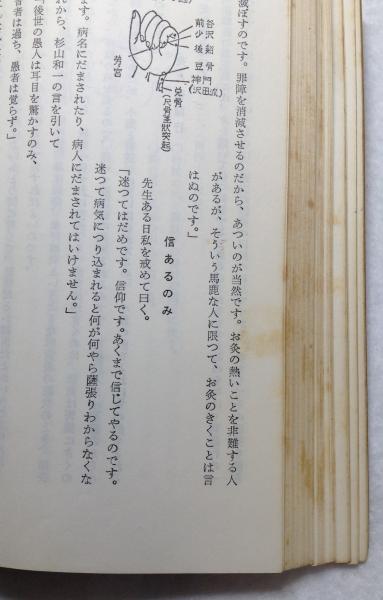 滅ぼすのです。罪障を消滅させるのだから、あついのが当然です。お灸の熱いことを非難する人
があるが、そういう馬鹿な人に限つて、お灸のきくことは言
はぬのです。
信あるのみ
先生ある日私を戒めて曰く。
「迷つてはだめです。信仰です。あくまで信じてやるのです。
迷つて病気につり込まれると何が何やら薩張りわからなくな
ます。病名にだまされたり、病人にだまされてはいけません。」
れから、杉山和一の言を引いて
後世の愚人は耳目を驚かすのみ、
者は過ち、愚者は覚らず。」
前谷
少沢
後谿
豆骨
神門
(沢田流)
兌骨
(尺骨茎狀突起)
労宮